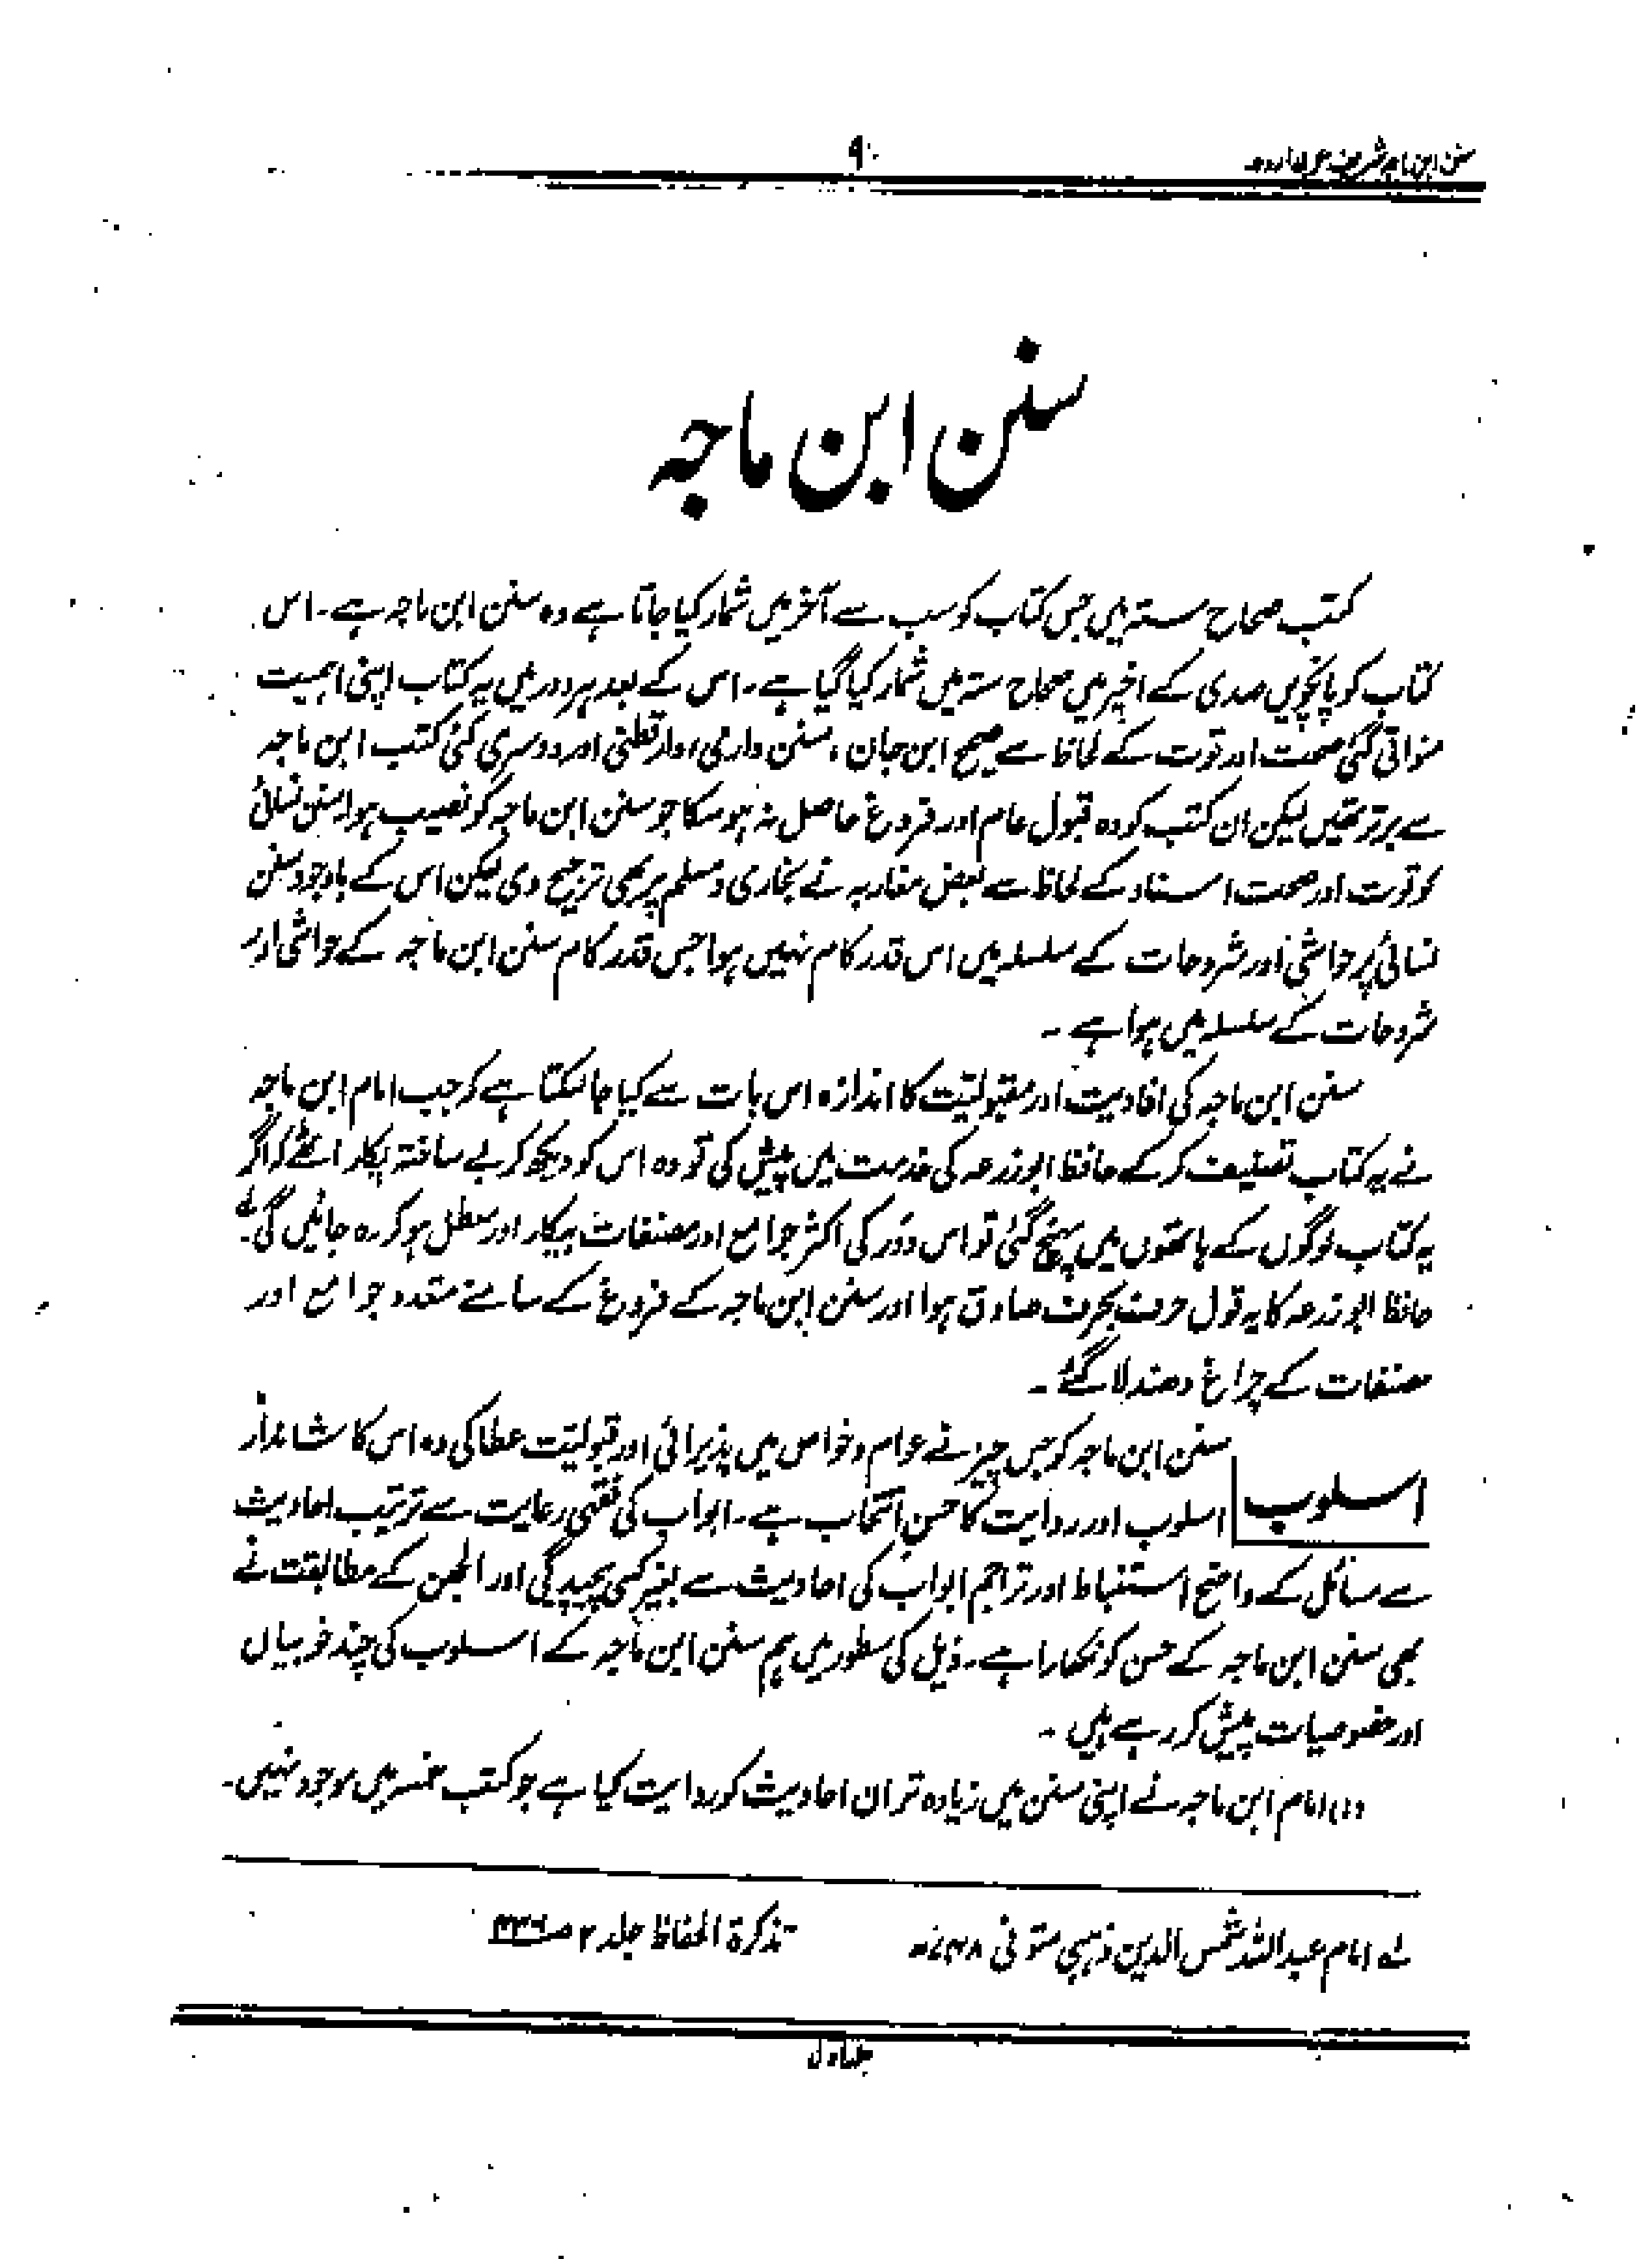 سنن ابن ماجہ شریف عربی اردو
۹
سنن ابن ماجہ
کتب صحاح ستہ میں جس کتاب کو سب سے آخر میں شمار کیا جاتا ہے وہ سنن ابن ماجہ ہے۔ اس
کتاب کو پانچویں صدی کے اخیر میں صحاح ستہ میں شمار کیا گیا ہے۔ اس کے بعد ہر دور میں یہ کتاب اپنی اہمیت
منواتی گئی صحت اور قوت کے لحاظ سے صحیح ابن حبان، سنن دارمی، دارقطنی اور دوسری کئی کتب ابن ماجہ
سے برتر تھیں لیکن ان کتب کو وہ قبول عام اور فروغ حاصل نہ ہو سکا جو سنن ابن ماجہ کو نصیب ہوا سنن نسائی
کو قوت اور صحت اسناد کے لحاظ سے بعض مغاربہ نے بخاری و مسلم پر بھی ترجیح دی لیکن اس کے باوجود سنن
نسائی پر حواشی اور شروحات کے سلسلہ میں اس قدر کام نہیں ہوا جس قدر کام سنن ابن ماجہ کے حواشی اور
شروحات کے سلسلہ میں ہوا ہے۔
سنن ابن ماجہ کی افادیت اور مقبولیّت کا اندازہ اس بات سے کیا جا سکتا ہے کہ جب امام ابن ماجہ
نے یہ کتاب تصنیف کر کے حافظ ابو زرعہ کی خدمت میں پیش کی تو وہ اس کو دیکھ کر بے ساختہ پکار اٹھے کہ اگر
یہ کتاب لوگوں کے ہاتھوں میں پہنچ گئی تو اس دَور کی اکثر جوامع اور مصنفات بیکار اور معطل ہو کر رہ جائیں گی۔ لے
حافظ ابو زرعہ کا یہ قول حرف بحرف صادق ہوا اور سنن ابن ماجہ کے فروغ کے سامنے متعدد جوامع اور
مصنفات کے چراغ دھندلا گئے۔
اسلوب سنن ابن ماجہ کو جس چیز نے عوام و خواص میں پذیرائی اور قبولیّت عطا کی وہ اس کا شاندار
اسلوب اور روایت کا حسنِ انتخاب ہے۔ ابواب کی فقہی رعایت سے ترتیب احادیث
سے مسائل کے واضح استنباط اور تراجم ابواب کی احادیث سے بغیر کسی پیچیدگی اور الجھن کے مطابقت نے
بھی سنن ابن ماجہ کے حسن کو نکھارا ہے۔ ذیل کی سطور میں ہم سنن ابن ماجہ کے اسلوب کی چند خوبیاں
اور خصوصیات پیش کر رہے ہیں۔
(۱) امام ابن ماجہ نے اپنی سنن میں زیادہ تر ان احادیث کو روایت کیا ہے جو کتب خمسہ میں موجود نہیں۔
لے امام عبداللہ شمس الدین ذہبی متوفی ۷۴۸ھ تذکرۃ الحفاظ جلد ۲ ص۶۳۶
جلد اول